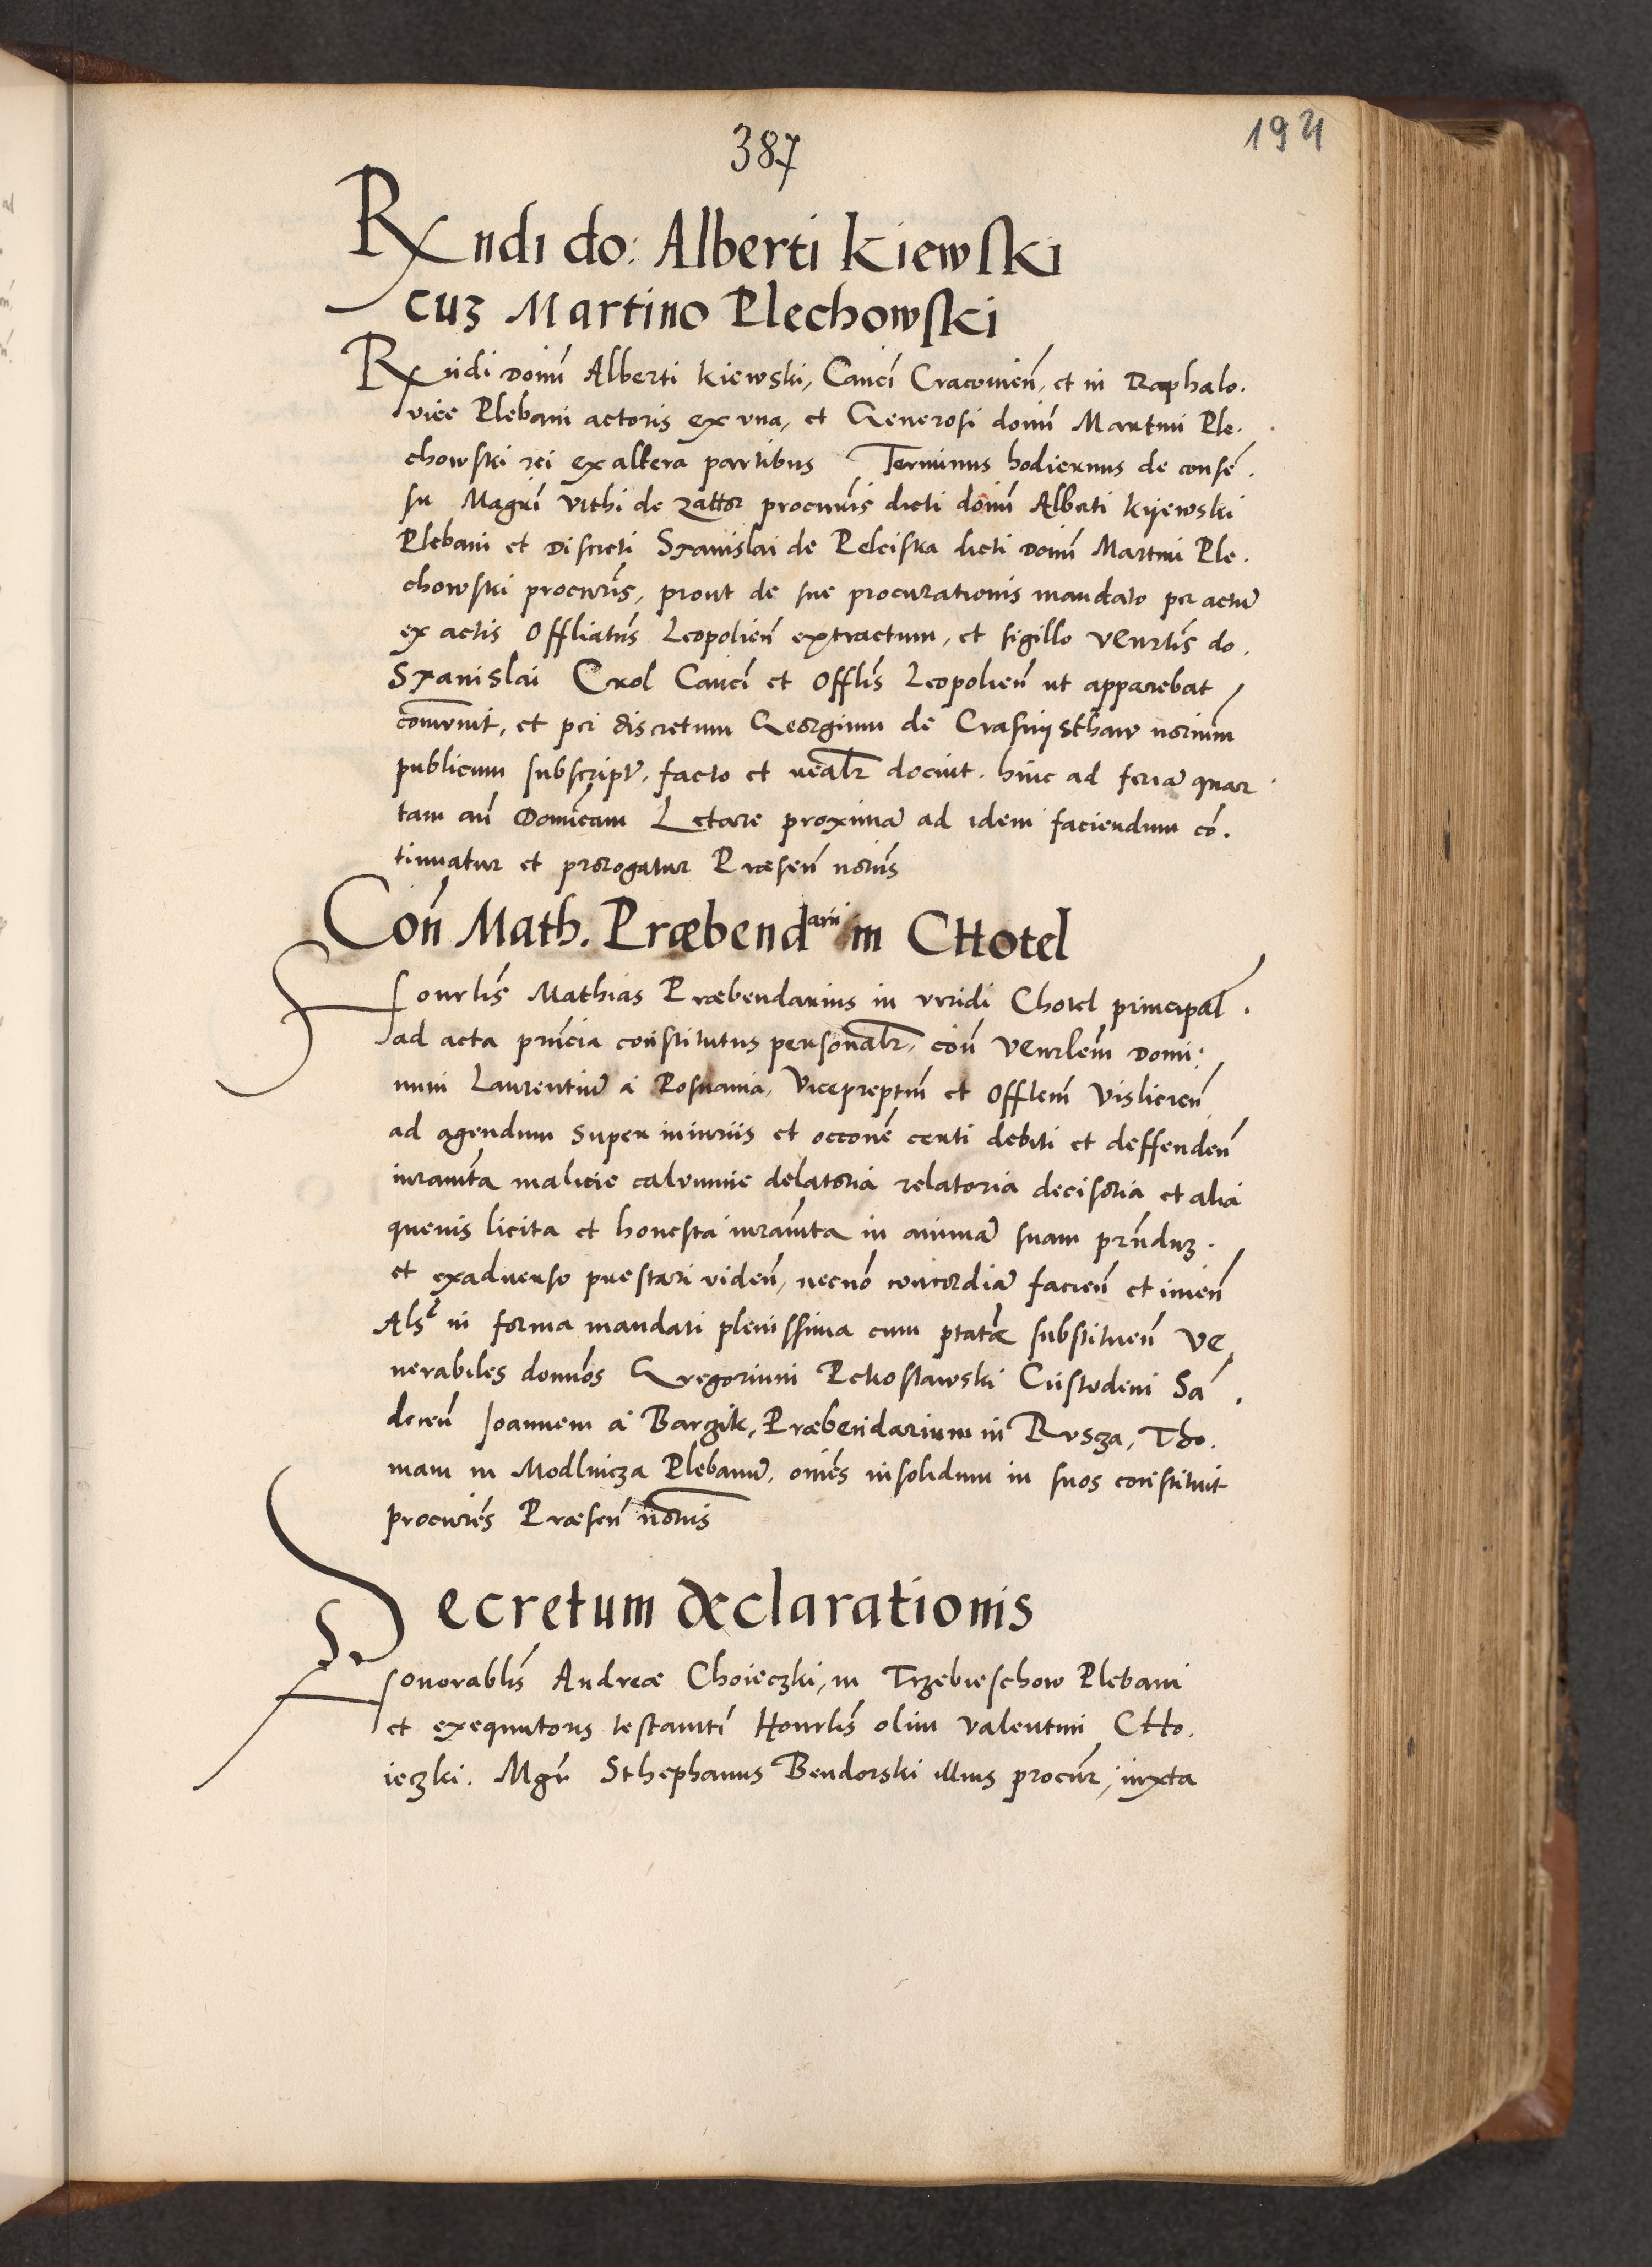 387
194
Rndi do: Alberti Kiewski
cuz Martino Plechowski
Rndi domi Alberti Kiewski, Canci Cracovien, et in Raphalo.
vice Plebani actoris ex una, et Generosi domi Martini Ple.
chowski rei ex altera partibus Terminus hodiernus de conse.
su Magri Vithi de Zator procuris dicti domi Alberti Kijewski
Plebani et Discreti Stanislai de Pelciska dicti domi Martini Ple.
chowski procuris, prout de sue procurationis mandato per actu
ex actis Offliatus Leopolien extractum, et sigillo Venrlis do.
Stanislai Crol Canci et Offlis Leopolien ut apparebat
comunit, et per discretum Georgium de Crasnijsthaw norium
publicum subscript. facto et realr docuit. hinc ad feria quar
tam an Domicam Letare proxima ad idem faciendum co.
tinuatur et prorogatur Præsen noriis
Con Math. Præbendarii in CHotel
Honrlis Mathias Præbendarius in viridi Chotel principal.
ad acta prncia constitutus personalr, con Venrlem Domi:
num Laurentiu a Posnania, Vicepreptm et Offlem Vislicien
ad agendum super iniuriis et occone certi debiti et deffenden
iuramta malicie calumnie delatoria relatoria decisoria et alia
quevis licita et honesta iuramta in anima suam prnduz.
et exaduerso prestari viden, necno concordia facien et inien
Als in forma mandati plenissima cum ptate substituen Ve,
nerabiles domnos Gregorium Petkoslawski Custodem Sa.
decen Joannem a Bargik, Præbendarium in Rusza, Tho.
mam in Modlnicza Plebanu, omes insolidum in suos constituit
procures Præsen noriis
Decretum declarationis
Honorablis Andreæ Choieczki, in Trzebieschow Plebani
et exequutoris testamti Honrlis olim Valentini CHo.
ieczki. Mgr Sthephanus Bendorski illius procur, iuxta